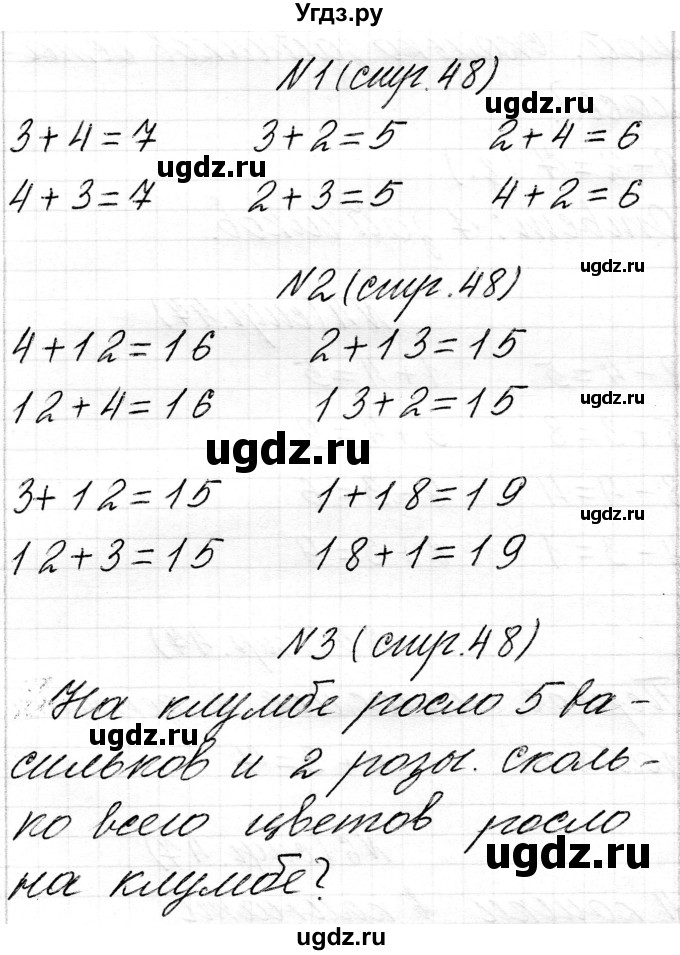 Угдз.ру
N1 (стр. 48)
ugdz.ru
3+4=7 3+2=5 2+4=6
ugdz.ru
4+3=7 2+3=5 4+2=6
ugdz.ru
N2 (стр. 48)
4+12=16 2+13=15
12+4=16 13+2=15
ugdz.ru
ugdz.ru
3+12=15 1+18=19
ugdz.ru
12+3=15 18+1=19
N3 (стр. 48)
На клумбе росло 5 ва-
ugdz.ru
сильков и 2 розы. Сколь-
ко всего цветов росло
ugdz.ru
на клумбе?
ugdz.ru